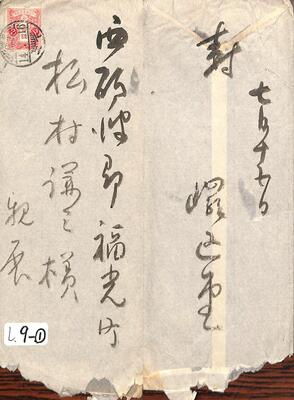 西砺波郡福光町
松村謙三様
親展
七月十五日
封
L.9-①